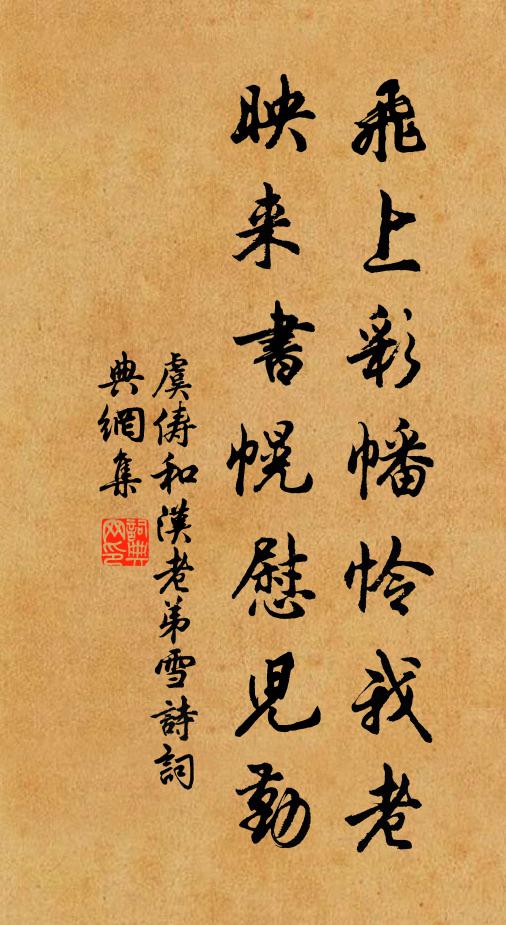 飛上彩幡怜我老
映来書幌慰児勤
虞儔和漢老弟雪詩詞
典網集
詞典网印